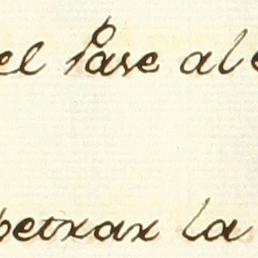 el Pase al
petrar la